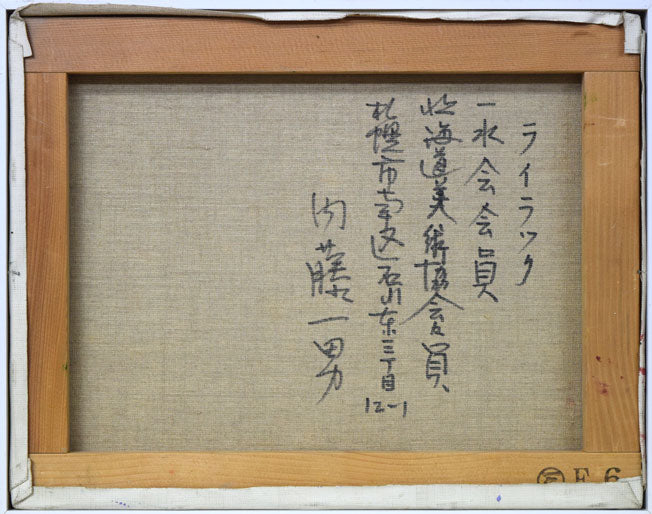 ライラック
一水会会員
北海道美術協会会員
札幌市南区石山东三丁目
12-1
内藤一男
F 6